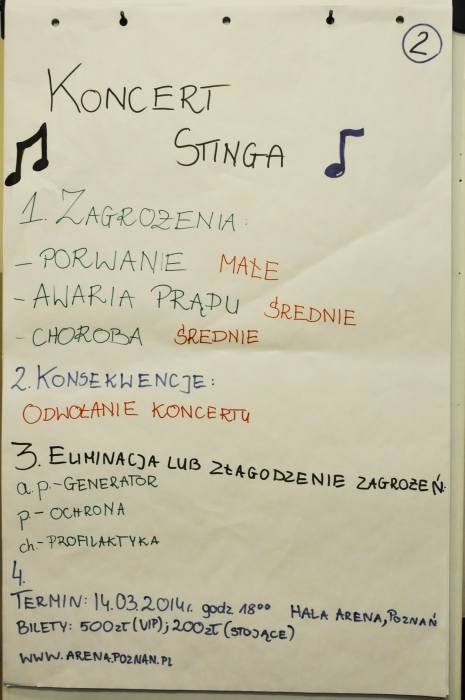 2
KONCERT
STINGA
1. ZAGROŻENIA:
- PORWANIE MAŁE
- AWARIA PRĄDU ŚREDNIE
- CHOROBA ŚREDNIE
2. KONSEKWENCJE:
ODWOŁANIE KONCERTU
3. ELIMINACJA LUB ZŁAGODZENIE ZAGROŻEŃ:
a.p.-GENERATOR
p- OCHRONA
ch.- PROFILAKTYKA
4.
TERMIN: 14.03.2014r. godz 18⁰⁰ HALA ARENA, POZNAŃ
BILETY: 500zł (VIP); 200zł (STOJĄCE)
WWW.ARENA.POZNAN.PL